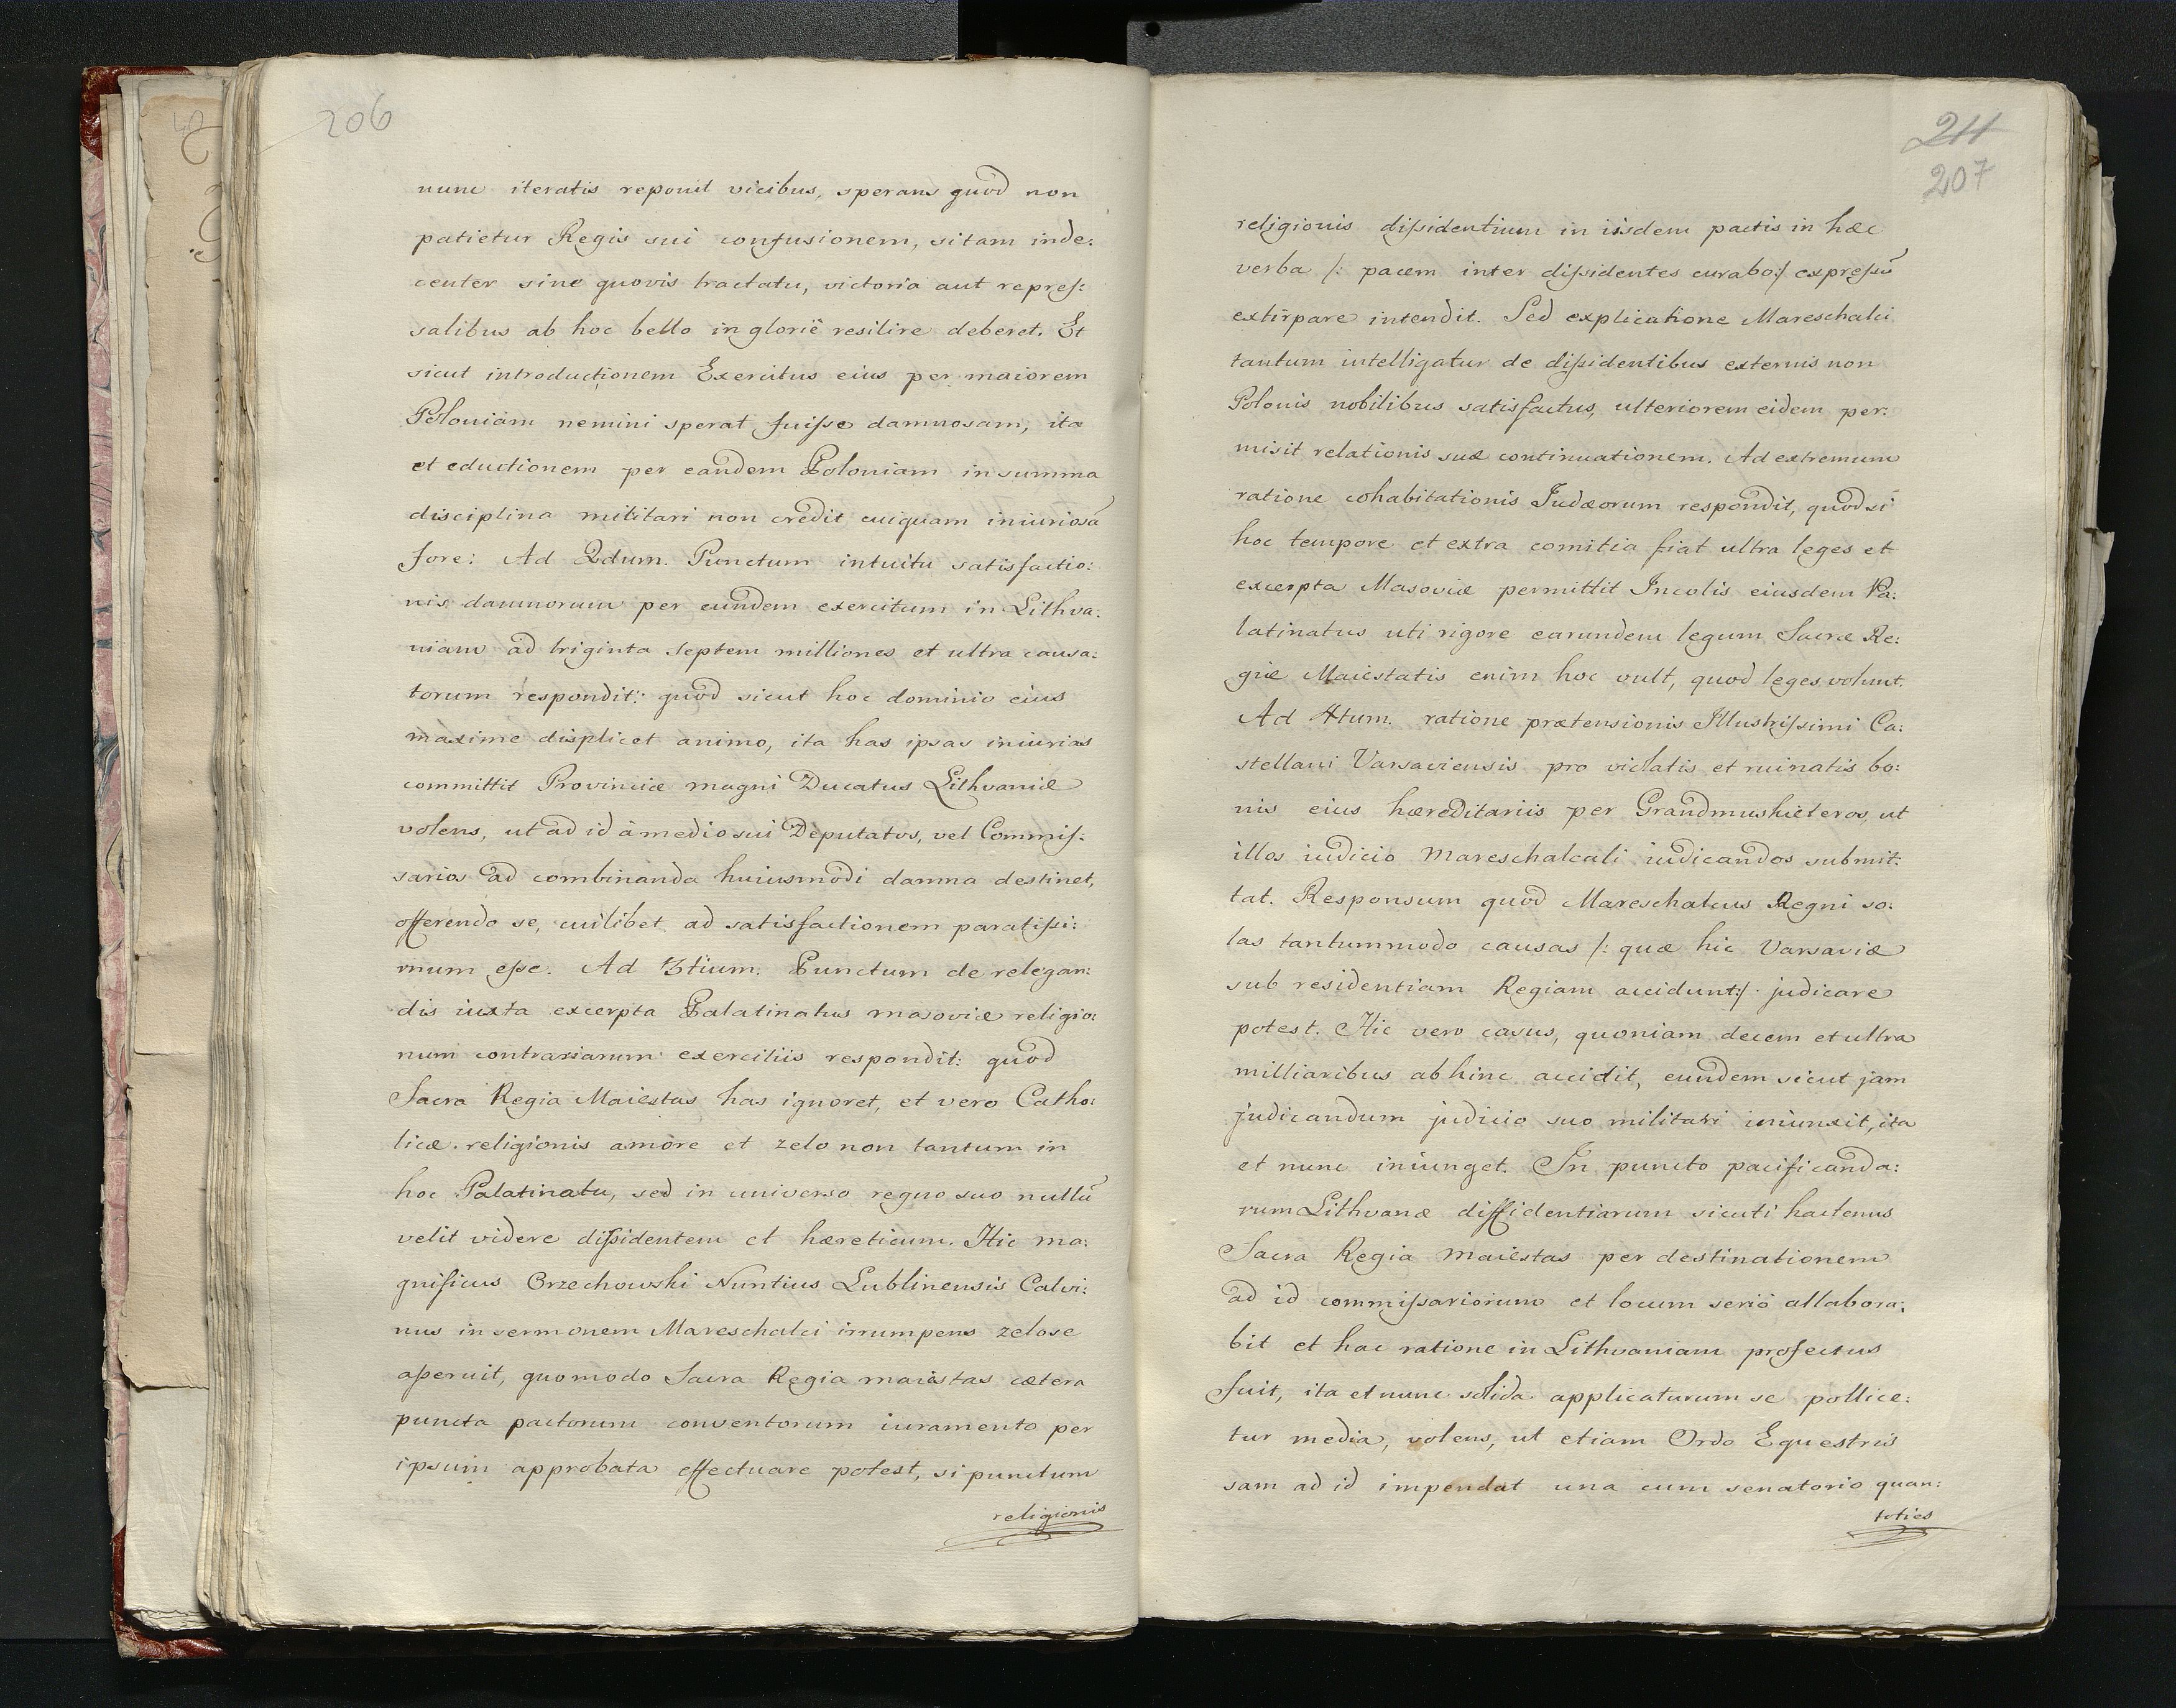 206
nunc iteratis reponit vicibus, sperans quod non
patietur Regis sui confusionem, si tam inde:
center sine quovis tractatu, victoria aut repreſ:
salibus ab hoc bello inglorie resilire deberet. Et
sicut introductionem Exercitus eius per maiorem
Poloniam nemini sperat fuiſse damnosam, ita
et eductionem per eandem Poloniam in summa
disciplina militari non credit cuiquam iniuriosā
fore: Ad 2dum. Punctum intuitu satisfactio:
nis damnorum per eundem exercitum in Lithva:
niam ad triginta septem milliones et ultra causa:
torum respondit: quod sicut hoc dominio eius
maxime displicet animo, ita has ipsas iniurias
committit Provinciæ magni Ducatus Lithvaniæ
volens, ut ad id à medio sui Deputatos, vel Commiſ:
sarios ad combinanda huiusmodi damna destinet,
offerendo se, cuilibet ad satisfactionem paratiſsi:
mum eſse. Ad 3tium. Punctum de relegan:
dis iuxta excerpta Palatinatus masoviæ religio:
num contrariarum exercitiis respondit: quod
Sacra Regia Maiestas has ignoret, et vero Catho:
licæ religionis amore et zelo non tantum in
hoc Palatinatu, sed in universo regno suo nullū
velit videre diſsidentem et hæreticum. Hic ma:
gnificus Orzechowski Nuntius Lublinensis Calvi:
nus in sermonem Mareschalci irrumpens zelose
aſseruit, quomodo Sacra Regia maiestas cætera
puncta pactorum conventorum iuramento per
ipsum approbata effectuare potest, si punctum
religionis
211
207
religionis diſsidentium in iisdem pactis in hæc
verba /: pacem inter diſsidentes curabo :/ expreſsū
extirpare intendit. Sed explicatione Mareschalci
tantum intelligatur de diſsidentibus externis non
Polonis nobilibus satisfactus, ulteriorem eidem per:
misit relationis suæ continuationem. Ad extremum
ratione cohabitationis Judæorum respondit, quod si
hoc tempore et extra comitia fiat ultra leges et
excerpta Masoviæ permittit Incolis eiusdem Pa:
latinatus uti rigore earundem legum Sacræ Re:
giæ Maiestatis enim hoc vult, quod leges volunt.
Ad 4tum. ratione prætensionis Illustriſsimi Ca:
stellani Varsaviensis pro violatis et ruinatis bo:
nis eius hæreditariis per Grandmushieteros, ut
illos iudicio Mareschalcali iudicandos submit:
tat. Responsum quod Mareschalcus Regni so:
las tantummodo causas /: quæ hic Varsaviæ
sub residentiam Regiam accidunt :/ judicare
potest. Hic vero casus, quoniam decem et ultra
milliaribus ab hinc accidit, eundem sicut jam
judicandum judicio suo militari iniunxit, ita
et nunc iniunget. In puncto pacificanda:
rum Lithvanæ diffidentiarum sicuti hactenus
Sacra Regia maiestas per destinationem
ad id commiſsariorum et locum serió allabora:
bit et hac ratione in Lithvaniam profectus
fuit, ita et nunc solida applicaturum se pollice:
tur media, volens, ut etiam Ordo Equestris
sam ad id impendat una cum senatorio quan:
toties